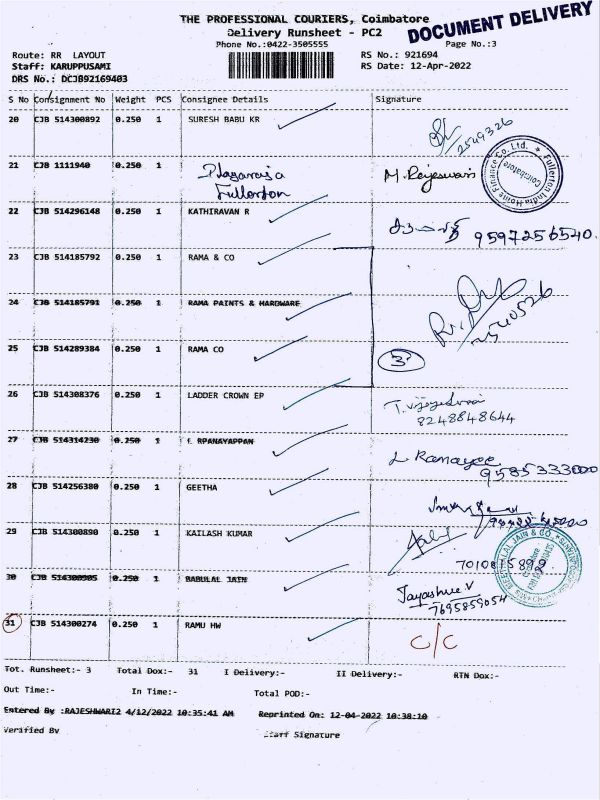 THE PROFESSIONAL COURIERS, Coimbatore
DOCUMENT DELIVERY
Delivery Runsheet - PC2
Phone No.:0422-3505555
Page No.:3
Route: RR LAYOUT
RS No.: 921694
Staff: KARUPPUSAMI
RS Date: 12-Apr-2022
DRS No.: DCJB92169403
S No Consignment No Weight PCS Consignee Details Signature
20 CJB 514300892 0.250 1 SURESH BABU KR
2549326
21 CJB 1111940 0.250 1 Fullerton M. Rajeswari
Fullerton India Home Finance Co. Ltd. Coimbatore
22 CJB 514296148 0.250 1 KATHIRAVAN R
9597256540.
23 CJB 514185792 0.250 1 RAMA & CO
24 CJB 514185791 0.250 1 RAMA PAINTS & HARDWARE
25 CJB 514289384 0.250 1 RAMA CO
3
26 CJB 514308376 0.250 1 LADDER CROWN EP
8248848644
27 CJB 514314230 0.250 1 RPANAYAPPAN
L Ramayee
9585333000
28 CJB 514256380 0.250 1 GEETHA
29 CJB 514300890 0.250 1 KAILASH KUMAR
30 CJB 514300905 0.250 1 BABULAL JAIN
Jayashree.V
7695859054
31 CJB 514300274 0.250 1 RAMU HW C/C
Tot. Runsheet:- 3 Total Dox:- 31 I Delivery:- II Delivery:- RTN Dox:-
Out Time:- In Time:- Total POD:-
Entered By :RAJESHWARI2 4/12/2022 10:35:41 AM Reprinted On: 12-04-2022 10:38:10
Verified By Staff Signature